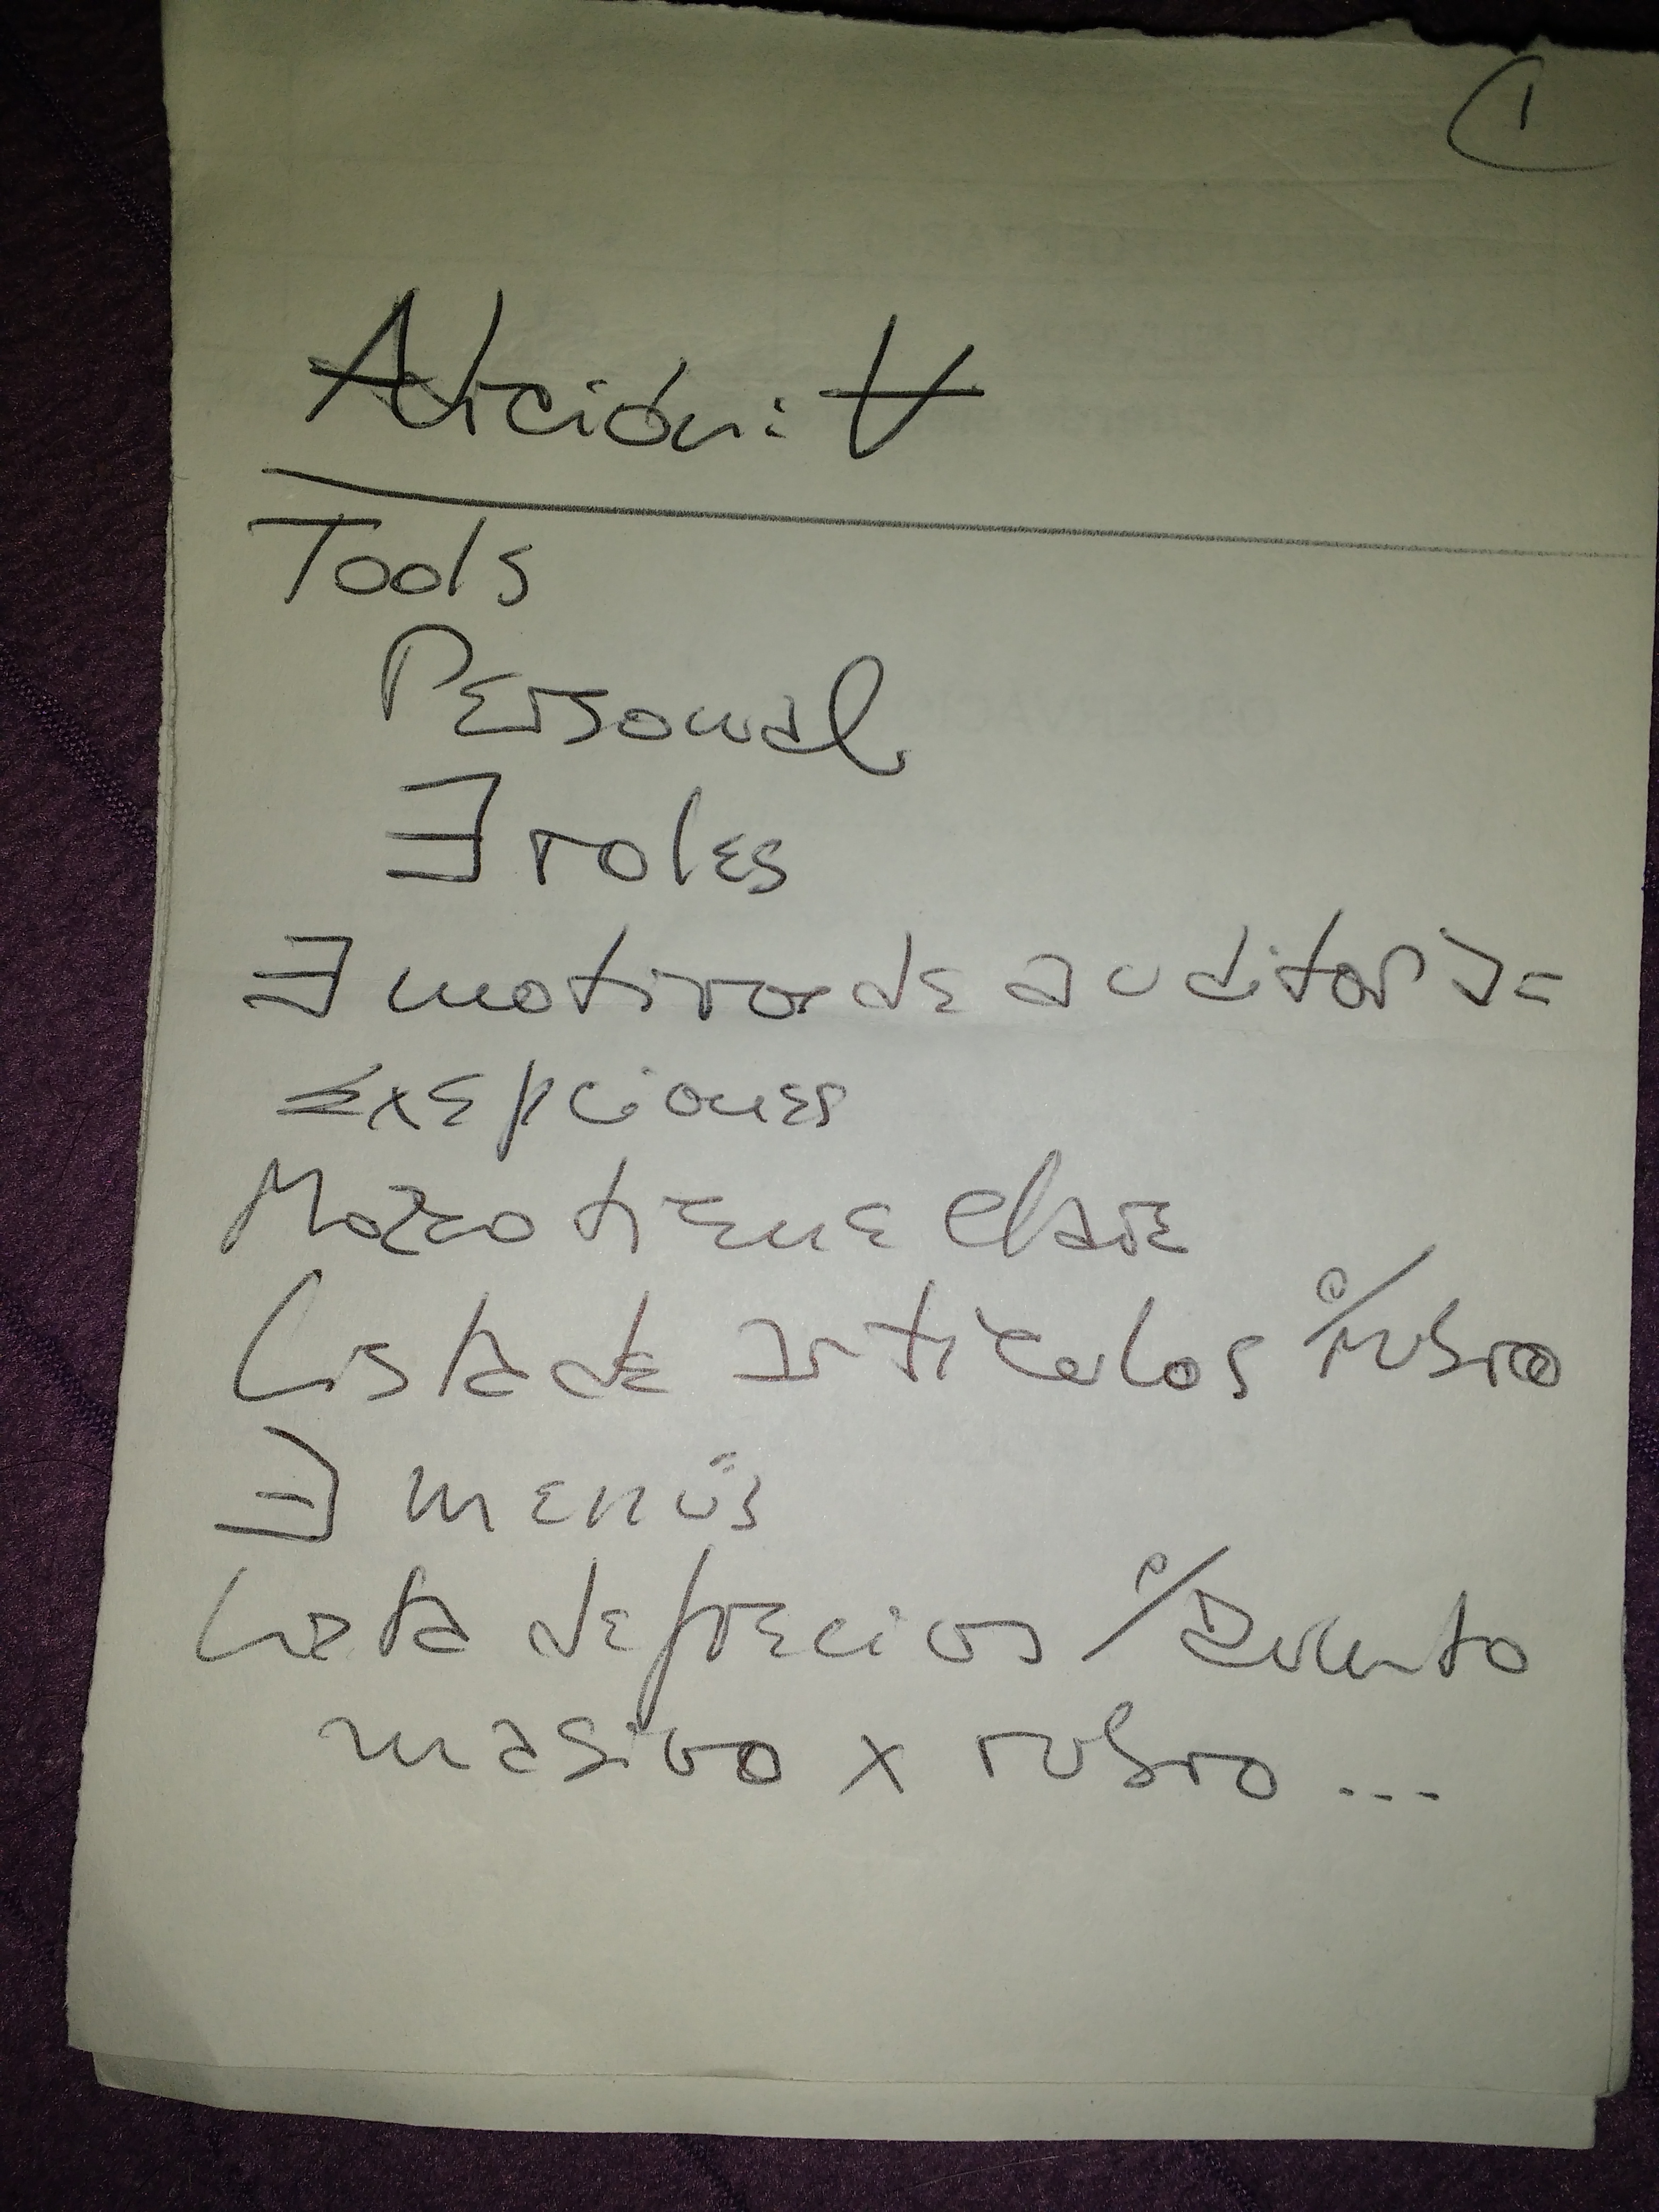 1
Adición: ∀
Tools
Personal
∃ roles
∃ motivos de auditoría
Exepciones
Mozo tiene clave
Lista de artículos p/rubro
∃ menús
Lista de precios p/Evento
masivo x rubro ...